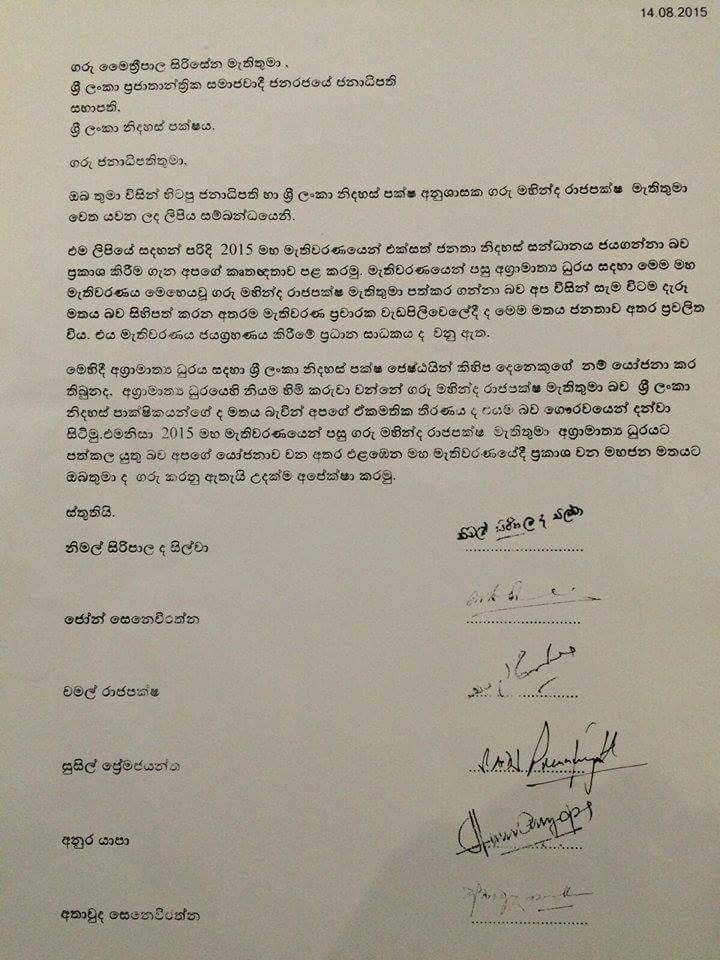 14.08.2015
ගරු මෛත්‍රීපාල සිරිසේන මැතිතුමා ,
ශ්‍රී ලංකා ප්‍රජාතාන්ත්‍රික සමාජවාදී ජනරජයේ ජනාධිපති
සභාපති,
ශ්‍රී ලංකා නිදහස් පක්ෂය.
ගරු ජනාධිපතිතුමා,
ඔබ තුමා විසින් හිටපු ජනාධිපති හා ශ්‍රී ලංකා නිදහස් පක්ෂ අනුශාසක ගරු මහින්ද රාජපක්ෂ මැතිතුමා
වෙත යවන ලද ලිපිය සම්බන්ධයෙනි.
එම ලිපියේ සදහන් පරිදි 2015 මහ මැතිවරණයෙන් එක්සත් ජනතා නිදහස් සන්ධානය ජයගන්නා බව
ප්‍රකාශ කිරීම ගැන අපගේ කෘතඥතාව පළ කරමු. මැතිවරණයෙන් පසු අග්‍රාමාත්‍ය ධුරය සදහා මෙම මහ
මැතිවරණය මෙහෙයවූ ගරු මහින්ද රාජපක්ෂ මැතිතුමා පත්කර ගන්නා බව අප විසින් සැම විටම දැරූ
මතය බව සිහිපත් කරන අතරම මැතිවරණ ප්‍රචාරක වැඩපිලිවෙලේදී ද මෙම මතය ජනතාව අතර ප්‍රචලිත
විය. එය මැතිවරණය ජයග්‍රහණය කිරීමේ ප්‍රධාන සාධකය ද වනු ඇත.
මෙහිදී අග්‍රාමාත්‍ය ධුරය සදහා ශ්‍රී ලංකා නිදහස් පක්ෂ ජෙෂ්ඨයින් කිහිප දෙනෙකුගේ නම් යෝජනා කර
තිබුනද, අග්‍රාමාත්‍ය ධුරයෙහි නියම හිමි කරුවා වන්නේ ගරු මහින්ද රාජපක්ෂ මැතිතුමා බව ශ්‍රී ලංකා
නිදහස් පාක්ෂිකයන්ගේ ද මතය බැවින් අපගේ ඒකමතික තීරණය ද එයම බව ගෞරවයෙන් දන්වා
සිටිමු.එමනිසා 2015 මහ මැතිවරණයෙන් පසු ගරු මහින්ද රාජපක්ෂ මැතිතුමා අග්‍රාමාත්‍ය ධුරයට
පත්කල යුතු බව අපගේ යෝජනාව වන අතර එළඹෙන මහ මැතිවරණයේදී ප්‍රකාශ වන මහජන මතයට
ඔබතුමා ද ගරු කරනු ඇතැයි උදක්ම අපේක්ෂා කරමු.
ස්තුතියි.
නිමල් සිරිපාල ද සිල්වා
ජෝන් සෙනෙවිරත්න
චමල් රාජපක්ෂ
සුසිල් ප්‍රේමජයන්ත
අනුර යාපා
අතාවුද සෙනෙවිරත්න